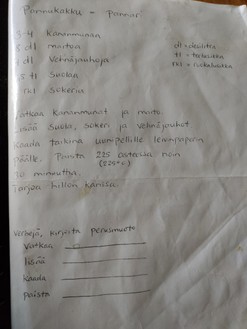 Pannukakku = Pannari
3-4 Kananmunaa
dl maitoa
dl = desilitra
dl Vehnäjauhoja
tl = teelusikka
tl Suolaa
rkl = ruokalusikka
rkl Sokeria
Vatkaa Kananmunat ja maito
Lisää Suola, sokeri ja vehnäjauhot.
Kaada taikina uunipellille leivinpaperin
Päälle. Paista 225 asteessa noin
30 minuuttia.
Tarjoa hillon kanssa.
kirjoita perusmuoto
Vatkaa
lisää
kaada
paista